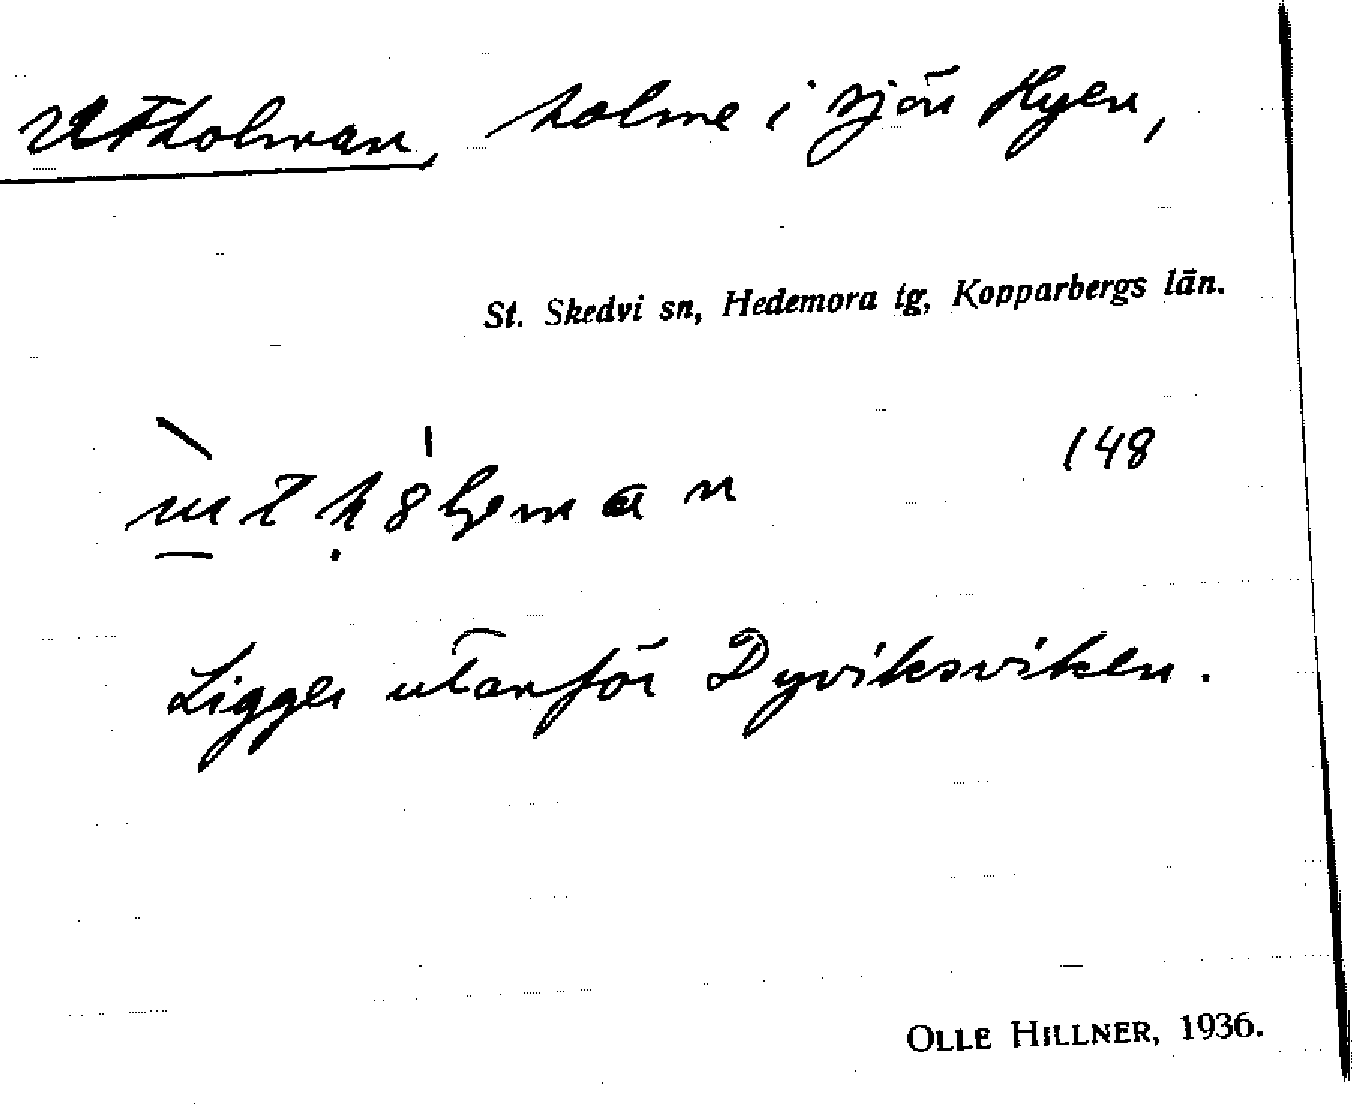 Utholman, holme i sjön Hyen,
St. Skedvi sn, Hedemora tg, Kopparbergs län.
148
Ligger utanför Dyviksviken.
OLLE HILLNER, 1936.